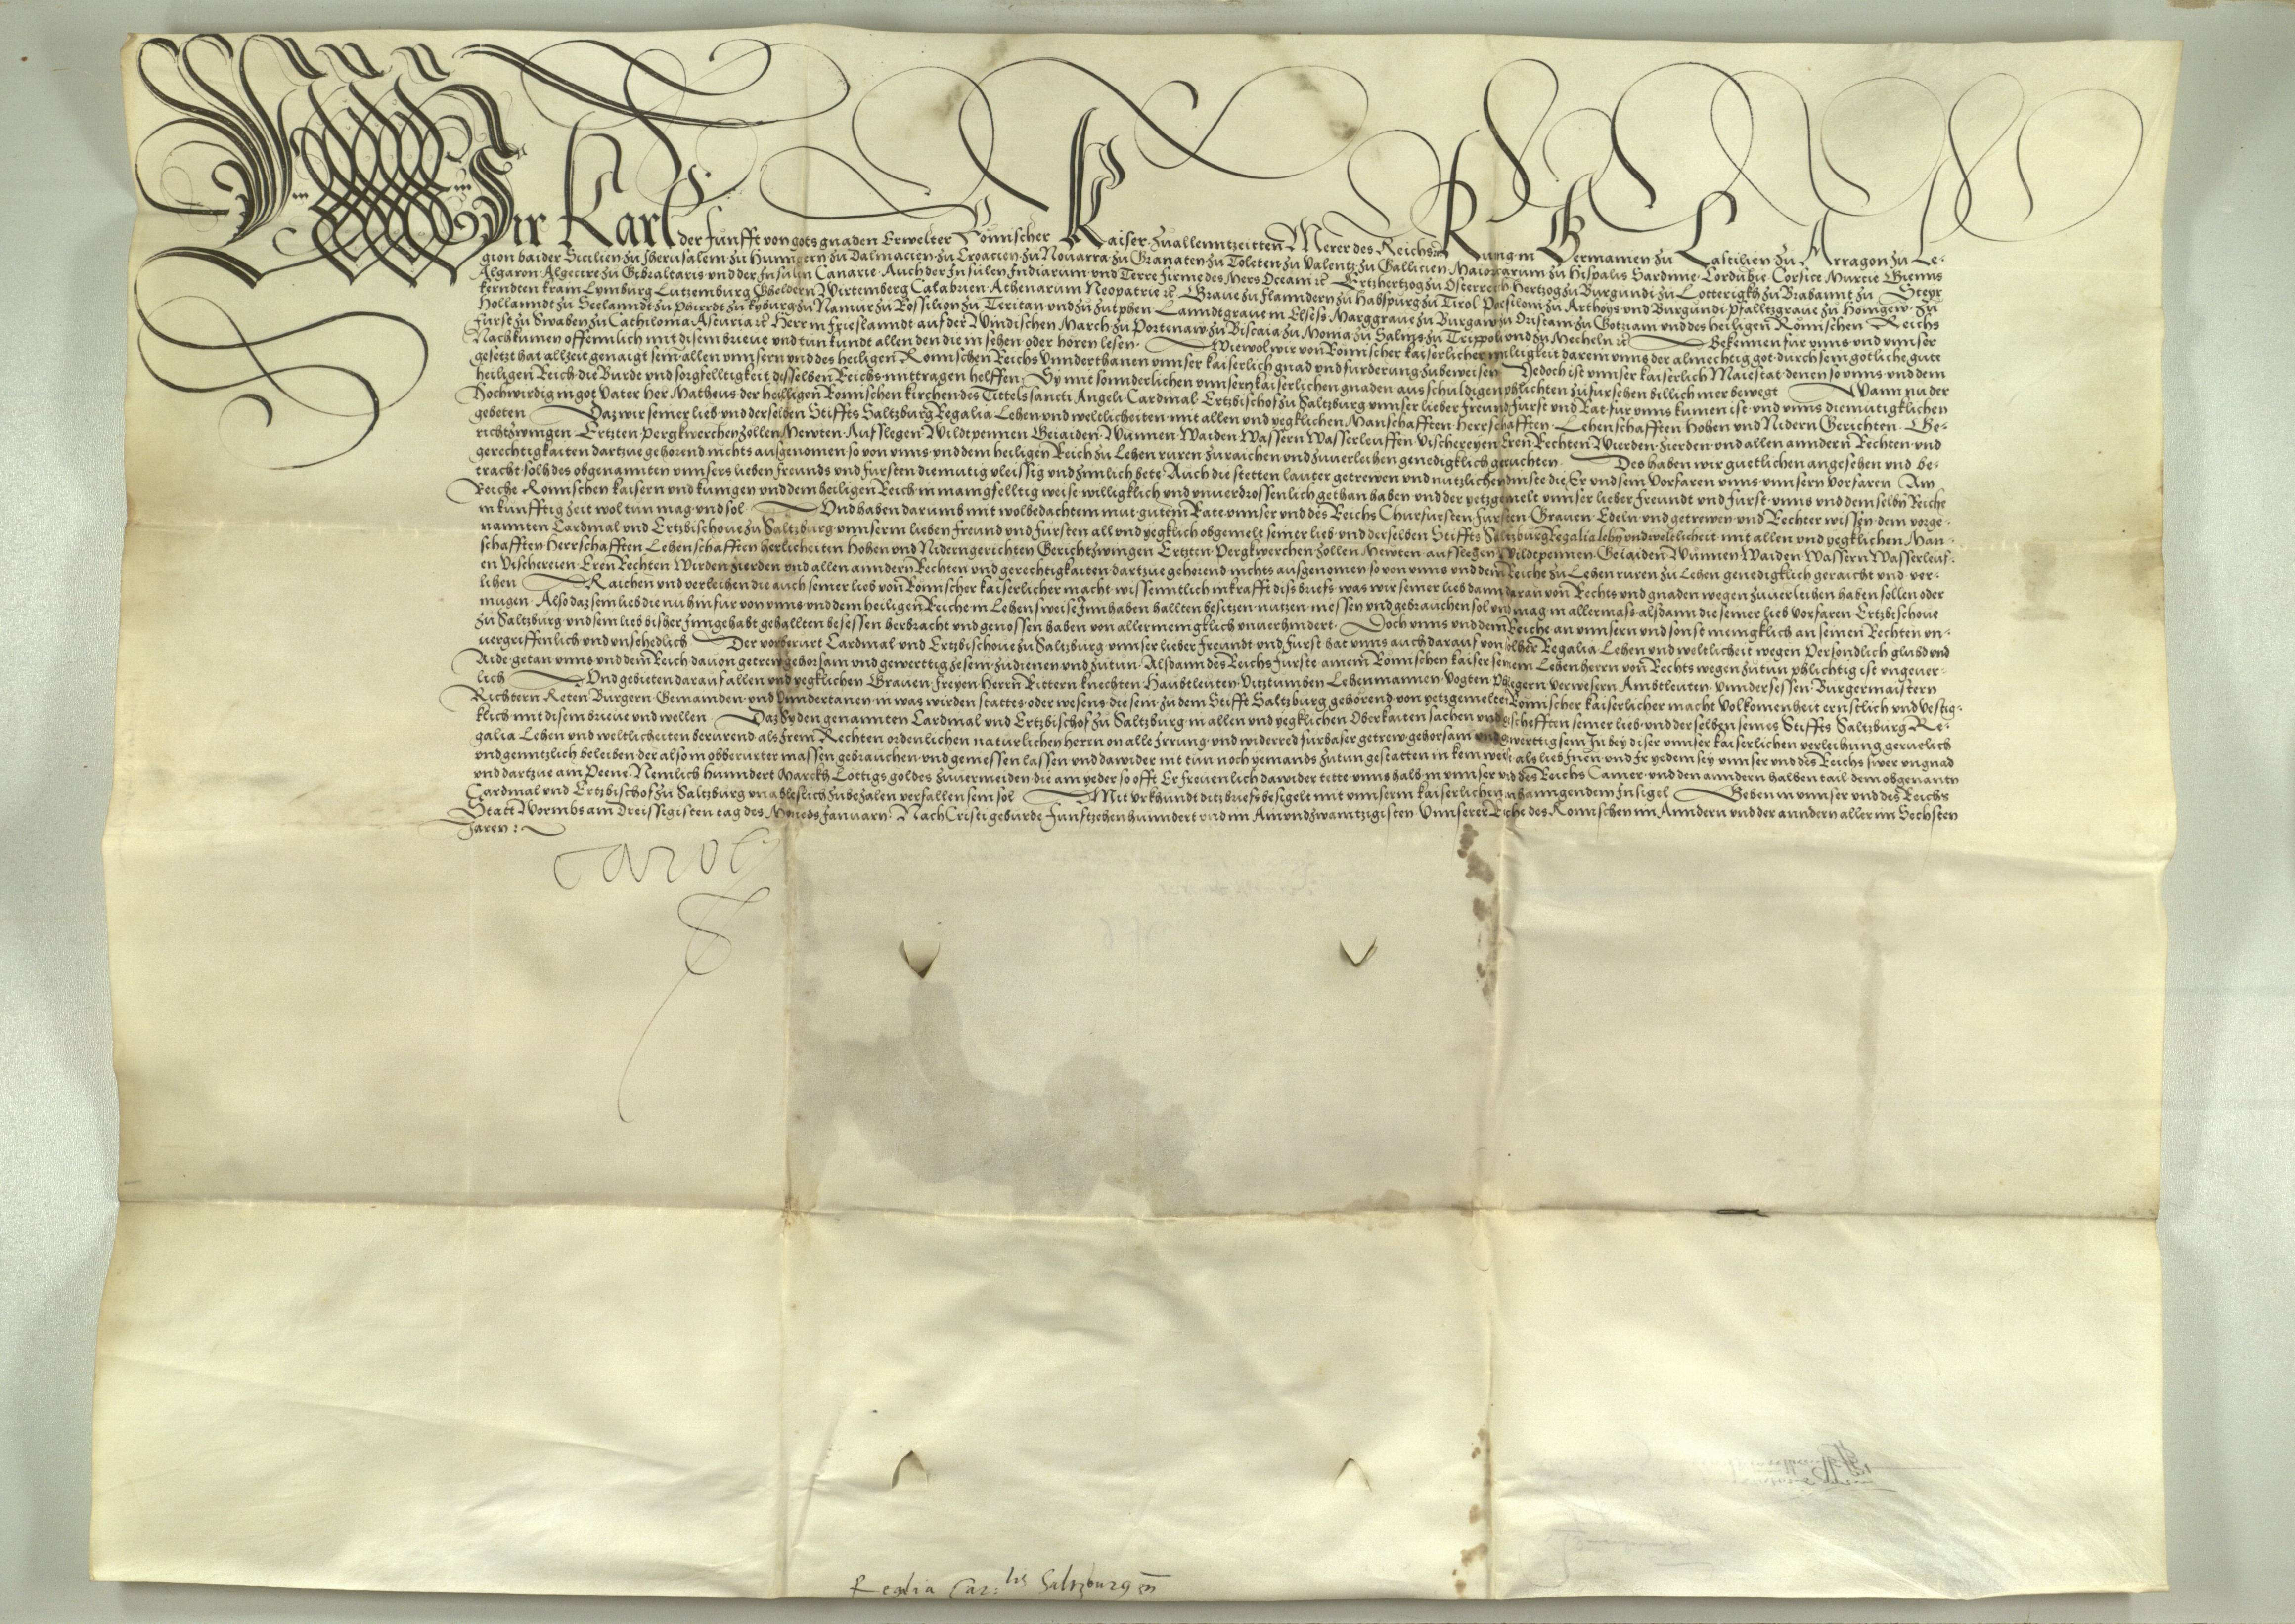 Wir Karl der Funfft von gots gnaden Erwelter Romischer Kaiser zu allenntzeitten Merer des Reichs ꝛc Kunig in Germanien zu Castilien zu Arragon zu Le-
gion baider Sicilien zu Jherusalem zu Hungern zu Dalmacien zu Croacien zu Nouarra zu Granaten zu Toleten zu Valentz zu Gallicien Maioricarum zu Hispalis Sardinie Cordubie Corsice Murcie Giennis
Algaron Algecire zu Gibraltaris vnd der Insulen Canarie Auch der Insulen Indiarum vnd Terre firme des Mers Oceani ꝛc Ertzhertzog zu Osterreich Hertzog zu Burgundi zu Lotterigkh zu Brabannt zu Steyr
kerndten kram Lymburg Lutzemburg Gheldern Wirtemberg Calabrien Athenarum Neopatrie ꝛc Graue zu Flanndern zu Habspurg zu Tirol zu Arthoys vnd Burgundi Pfalltzgraue zu Honigew zu
Hollanndt zu Seelanndt zu Phierdt zu kyburg zu Namur zu Rossilion zu Teritan vnd zu Zutphen Lanndtgraue in Elsess Marggraue zu Burgaw zu Oristani zu Gotziani vnd des heiligen Romischen Reichs
Furst zu Swaben zu Cathilonia Asturia ꝛc Herr in Frieslanndt auf der Windischen March zu Portenaw zu Biscaia zu Monia zu Salins zu Trippoli vnd zu Mecheln ꝛc Bekennen fur vnns vnd vnnser
Nachkumen offennlich mit disem brieue vnd tun kundt allen den die in sehen oder horen lesen Wiewol wir von Romischer kaiserlicher miltigkeit darein vnns der almechtig got durch sein gotliche gute
gesetzt hat allzeit genaigt sein allen vnnsern vnd des heiligen Romischen Reichs vnnderthanen vnnser kaiserlich gnad vnd furderung zubeweisen Jedoch ist vnnser kaiserlich Maiestat denen so vnns vnd dem
heiligen Reich die Burde vnd sorgfelltigkeit desselben Reichs mittragen helffen Sy mit sonnderlichen vnnsern kaiserlichen gnaden aus schuldigen phlichten zufursehen billich mer bewegt Wann nu der
Hochwirdig in got Vater Her Matheus der heilligen Romischen kirchen des Tittels sancti Angeli Cardinal Ertzbischof zu Saltzburg vnnser lieber freund furst vnd Rat fur vnns kumen ist vnd vnns diemutigklichen
gebeten Daz wir seiner lieb vnd derselben Stiffts Saltzburg Regalia Lehen vnd weltlicheiten mit allen vnd yegklichen Manschafften Herrschafften Lehenschafften Hohen vnd Nidern Gerichten Ge-
richtzwingen Ertzten Pergkwerchen zollen Mewten Aufslegen Wildtpennen Geiaiden Wunnen Waiden Wassern Wasserleuffen Vischereyen Eren Rechten Wierden zierden vnd allen anndern Rechten vnd
gerechtigkaiten dartzue gehorend nichts ausgenomen so von vnns vnd dem heiligen Reich zu Lehen ruren zuraichen vnd zuuerleihen genedigklich geruchten Des haben wir guetlichen angesehen vnd be-
tracht solh des obgenannten vnnsers lieben freunds vnd fursten diemutig vleissig vnd zimlich bete Auch die stetten lauter getrewen vnd nutzlichen dinste die Er vnd sein Vorfaren vnns vnnsern vorfaren Am
Reiche Romischen kaisern vnd kunigen vnd dem heiligen Reich in manigfelltig weise willigklich vnd vnuerdrossenlich gethan haben vnd der yetzgemelt vnnser lieber Freundt vnd Furst vnns vnd dem selbn Reiche
in kunfftig zeit wol tun mag vnd sol Vnd haben darumb mit wolbedachtem mut gutem Rate vnnser vnd des Reichs Churfursten fursten Grauen Edeln vnd getrewen vnd Rechter wissen dem vorge-
nannten Cardinal vnd Ertzbischoue zu Saltzburg vnnserm lieben freund vnd fursten all vnd yegklich obgemelt seiner lieb vnd derselben Stiffts Saltzburg Regalia lehn vnd weltlicheit mit allen vnd yegklichen Man-
schafften Herrschafften Lehenschafften herlicheiten Hohen vnd Nidern gerichten Gerichtzwingen Ertzten Pergkwerchen zollen Mewten aufslegen Wildtpennen Geiaiden Wunnen Waiden Wassern Wasserleuf-
en Vischereien Eren Rechten Wirden zierden vnd allen anndern Rechten vnd gerechtigkaiten dartzue gehorend nichts ausgenomen so von vnns vnd dem Reiche zu Lehen ruren zu Lehen genedigklich geraicht vnd ver-
lihen Raichen vnd verleihen die auch seiner lieb von Romischer kaiserlicher macht wissenntlich in krafft diss briefs was wir seiner lieb dann daran von Rechts vnd gnaden wegen zuuerleihen haben sollen oder
mugen Also daz sein lieb die nu hinfur von vnns vnd dem heiligen Reiche in Lehensweise Innhaben hallten besitzen nutzen niessen vnd gebrauchen sol vnd mag in allermass als dann die seiner lieb Vorfaren Ertzbischoue
zu Saltzburg vnd sein lieb bisher Inngehabt gehallten besessen herbracht vnd genossen haben von allermenigklich vnuerhindert Doch vnns vnd dem Reiche an vnnsern vnd sonst menigklich an seinen Rechten vn-
uergriffenlich vnd vnschedlich Der vorberurt Cardinal vnd Ertzbischoue zu Saltzburg vnnser lieber Freundt vnd Furst hat vnns auch darauf von solher Regalia Lehen vnd weltlicheit wegen Persondlich glubd vnd
Aide getan vnns vnd dem Reich dauon getrew gehorsam vnd gewerttig ze sein zudienen vnd zutun Als dann des Reichs Furste ainem Romischen kaiser seinem Lehenherrn von Rechts wegen zutun phlichtig ist vngeuer-
lich Vnd gebieten darauf allen vnd yegklichen Grauen Freyen Herrn Rittern knechten Haubtleuten Vitztumben Lehenmannen Vogten Phlegern verwesern Ambtleuten vnndersessen Burgermaistern
Richtern Reten Burgern Gemainden vnd vnndertanen in was wirden stattes oder wesens die sein zu dem Stifft Saltzburg gehorend von yetzgemelter Romischer kaiserlicher macht Volkomenheit ernstlich vnd vestig-
klich mit disem brieue vnd wellen Daz Sy den genannten Cardinal vnd Ertzbischof zu Saltzburg in allen vnd yegklichen Oberkaiten sachen vnd geschefften seiner lieb vnd derselben seines Stiffts Saltzburg Re-
galia Lehen vnd weltlicheiten berurend als Irem Rechten ordenlichen naturlichen herrn on alle Irrung vnd widerred furbaser getrew gehorsam vnd gewerttig sein In bey diser vnnser kaiserlichen verleihung geruelich
vnd genntzlich beleiben der also in obberurter massen gebrauchen vnd geniessen lassen vnd dawider nit tun noch yemands zutun gestatten in kein weise als lieb Inen vnd Ir yedem sey vnnser vnd des Reichs swer vngnad
vnd dartzue ain Peene Nemlich hunndert Marckh Lottigs goldes zuuermeiden die ain yeder so offt Er freuenlich dawider tette vnns halb in vnnser vnd des Reichs Camer vnd den anndern halben tail dem obgenantn
Cardinal vnd Ertzbischof zu Saltzburg vnableslich zubezalen verfallen sein sol Mit vrkhundt ditz briefs besigelt mit vnnserm kaiserlichen anhanngendem Insigel Geben in vnnser vnd des Reichs
Statt Wormbs am Dreissigisten tag des Moneds January Nach Cristi geburde Funftzehenhunndert vnd im Ainundzwanntzigisten Vnnserer Reiche des Romischen im Anndern vnd der anndern aller im Sechsten
Jaren
Carolus
Regalia Car:lis Saltzburgen